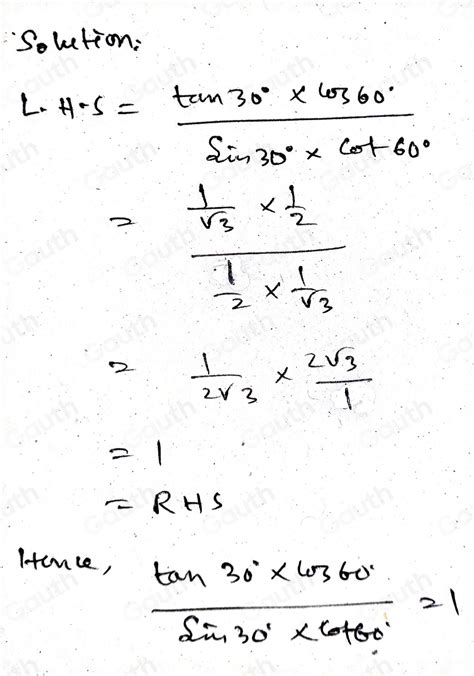 Solution:
L.H.S = tan 30° × cos 60° / Sin 30° × Cot 60°
= 1/√3 × 1/2 / 1/2 × 1/√3
= 1/2√3 × 2√3/1
= 1
= RHS
Hence, tan 30° × cos 60° / Sin 30° × Cot 60° = 1
Gauth